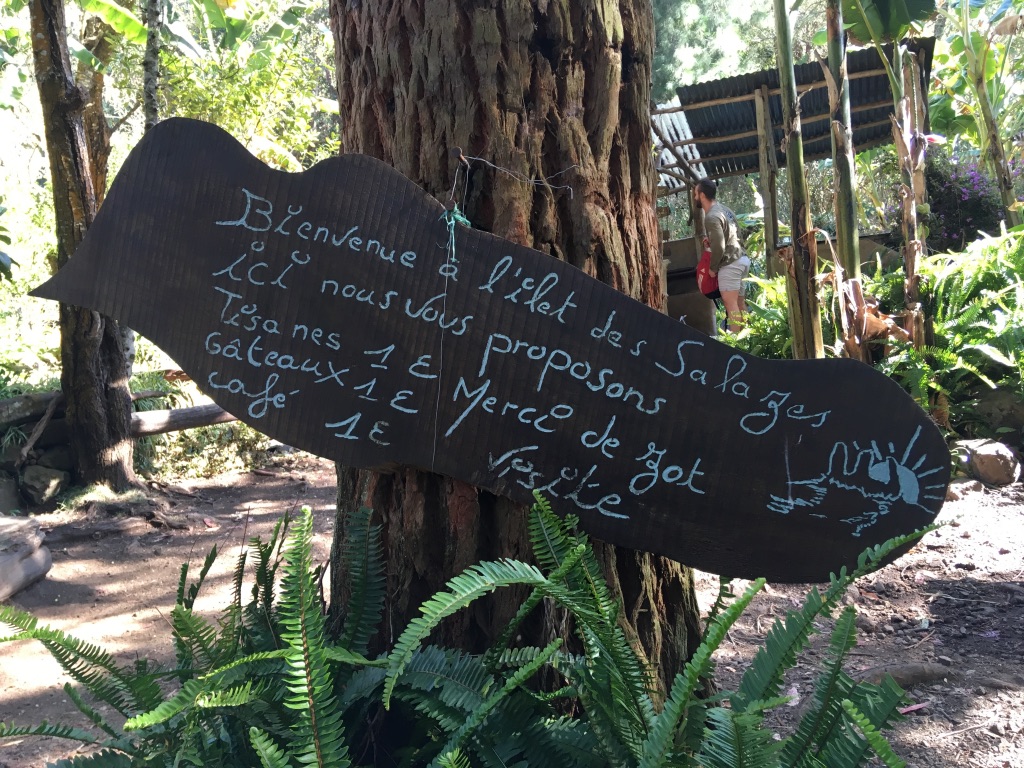 Bienvenue à l'îlet des Salazes
ici nous vous proposons
Tisanes 1 €
Gâteaux 1 €
café 1 €
Merci de zot
visite